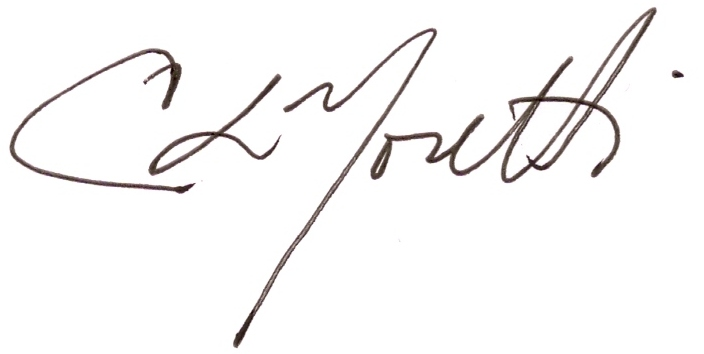 C L Moretti